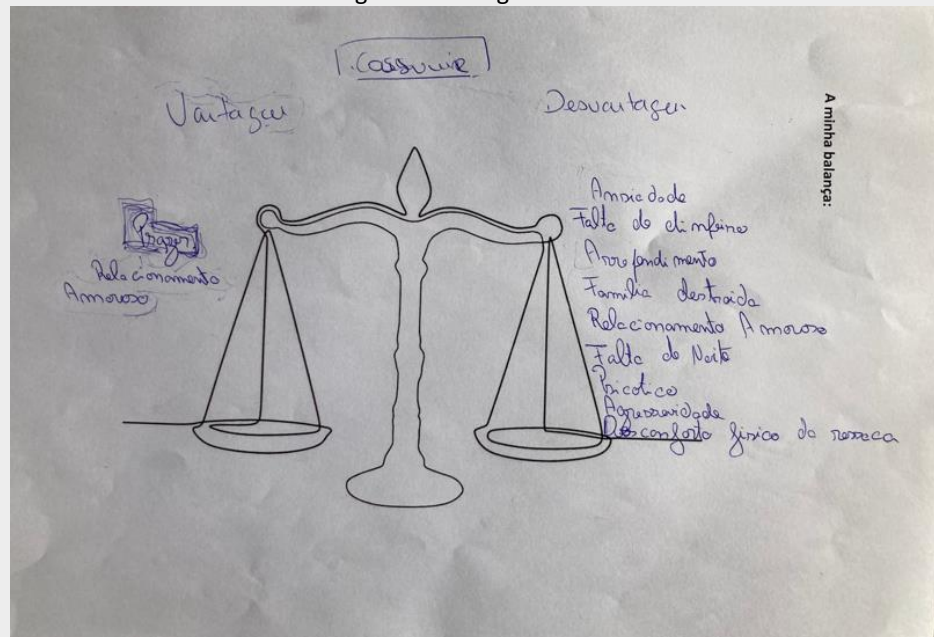 Consumir
Vantagem
Desvantagem
A minha balança:
Prazer
Relacionamento
Amoroso
Ansiedade
Falta de dinheiro
Arrependimento
Família destruida
Relacionamento Amoroso
Falta de
Psicotico
Agressividade
Desconforto fisico da ressaca